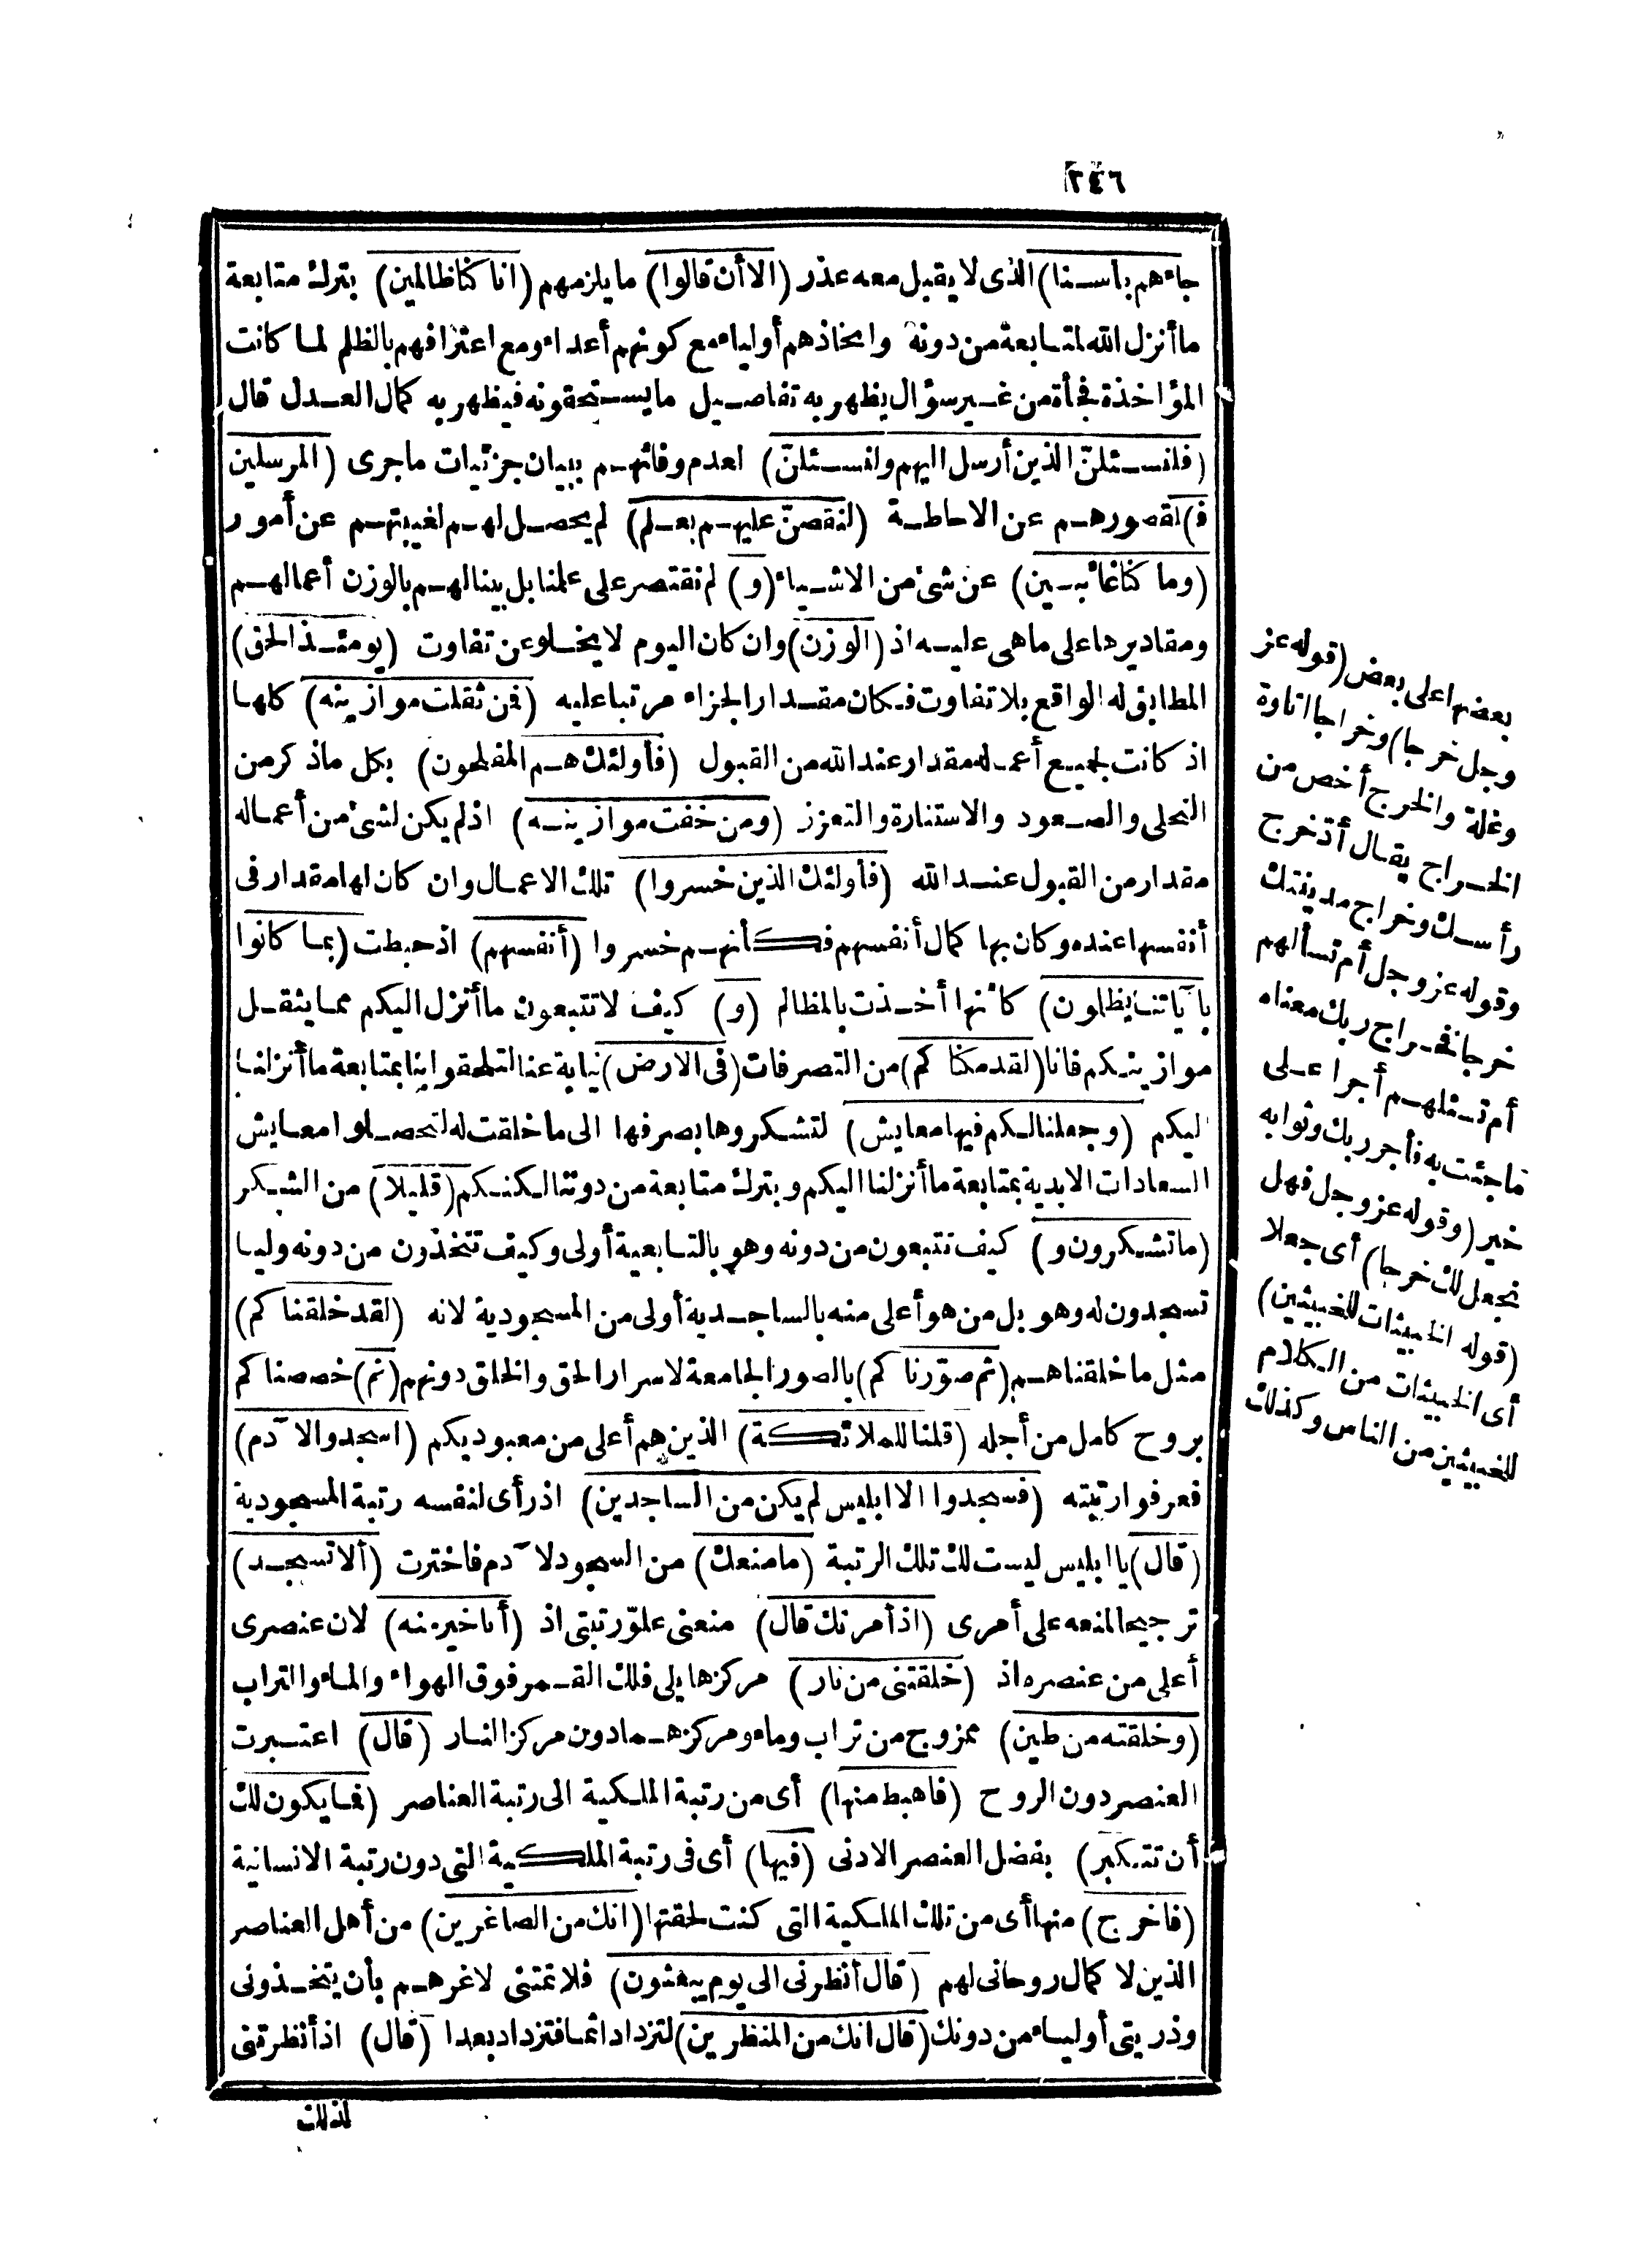 ٢٤٦
جاءهم بأسنا) الذى لا يقبل معه عذر (الا أن قالوا) ما يلزمهم (انا كنا ظالمين) بترك متابعة
ما أنزل الله لمتابعة من دونه واتخاذهم أولياء مع كونهم أعداء ومع اعترافهم بالظلم لما كانت
المؤاخذة فجأة من غير سؤال يظهر به تفاصيل ما يستحقونه فيظهر به كمال العدل قال
(فلنسئلنّ الذين أرسل اليهم ولنسئلنّ) لعدم وفائهم ببيان جزئيات ما جرى (المرسلين
ف) لقصورهم عن الاحاطة (لنقصنّ عليهم بعلم) لم يحصل لهم لغيبتهم عن أمور
(وما كنا غائبين) عن شئ من الاشياء (و) لم نقتصر على علمنا بل بينا لهم بالوزن أعمالهم
ومقاديرها على ما هى عليه اذ (الوزن) وان كان اليوم لا يخلو عن تفاوت (يومئذ الحق)
المطابق له الواقع بلا تفاوت فكان مقدار الجزاء مرتبا عليه (فمن ثقلت موازينه) كلها
اذ كانت لجميع أعماله مقدار عند الله من القبول (فأولئك هم المفلحون) بكل ما ذكر من
التحلى والصعود والاستنارة والتعزز (ومن خفت موازينه) اذ لم يكن لشئ من أعماله
مقدار من القبول عند الله (فأولئك الذين خسروا) تلك الاعمال وان كان لها مقدار فى
أنفسها عنده وكان بها كمال أنفسهم فكأنهم خسروا (أنفسهم) اذ حبطت (بما كانوا
بآياتنا يظلمون) كأنها أخذت بالمظالم (و) كيف لا تتبعون ما أنزل اليكم مما يثقل
موازينكم فانا (لقد مكنا كم) من التصرفات (فى الارض) نيابة عنا لتلحقوا بنا بمتابعة ما أنزلنا
اليكم (وجعلنا لكم فيها معايش) لتشكروها بصرفها الى ما خلقت له لتحصلوا معايش
السعادات الابدية بمتابعة ما أنزلنا اليكم وبترك متابعة من دوننا لكنكم (قليلا) من الشكر
(ما تشكرون و) كيف تتبعون من دونه وهو بالتابعية أولى وكيف تتخذون من دونه وليا
تسجدون له وهو بل من هو أعلى منه بالساجدية أولى من المسجودية لانه (لقد خلقنا كم)
مثل ما خلقناهم (ثم صوّرنا كم) بالصور الجامعة لاسرار الحق والخلق دونهم (ثم) خصصنا كم
بروح كامل من أجله (قلنا للملائكة) الذين هم أعلى من معبوديكم (اسجدوا لآدم)
فعرفوا رتبته (فسجدوا الا ابليس لم يكن من الساجدين) اذ رأى لنفسه رتبة المسجودية
(قال) يا ابليس ليست لك تلك الرتبة (ما منعك) من السجود لآدم فاخترت (ألا تسجد)
ترجيحا لمنعه على أمرى (اذ أمرتك قال) منعنى علوّ رتبتى اذ (أنا خير منه) لان عنصرى
أعلى من عنصره اذ (خلقتنى من نار) مركزها يلى فلك القمر فوق الهواء والماء والتراب
(وخلقته من طين) ممزوج من تراب وماء ومركزهما دون مركز النار (قال) اعتبرت
العنصر دون الروح (فاهبط منها) أى من رتبة الملكية الى رتبة العناصر (فما يكون لك
أن تتكبر) بفضل العنصر الادنى (فيها) أى فى رتبة الملكية التى دون رتبة الانسانية
(فاخرج) منها أى من تلك الملكية التى كنت لحقتها (انك من الصاغرين) من أهل العناصر
الذين لا كمال روحانى لهم (قال أنظرنى الى يوم يبعثون) فلا تمتنى لاغرهم بأن يتخذونى
وذريتى أولياء من دونك (قال انك من المنظرين) لتزداد اثما فتزداد بعدا (قال) اذ أنظرتنى
لذلك
بعضها على بعض (قوله عز
وجل خرجا) وخراجا اتاوة
وغلة والخرج أخص من
الخراج يقال أدّ خرج
رأسك وخراج مدينتك
وقوله عز وجل أم تسألهم
خرجا فخراج ربك معناه
أم تسئلهم أجرا على
ما جئت به فأجر ربك وثوابه
خير (وقوله عز وجل فهل
نجعل لك خرجا) أى جعلا
(قوله الخبيثات للخبيثين)
أى الخبيثات من الكلام
للخبيثين من الناس وكذلك